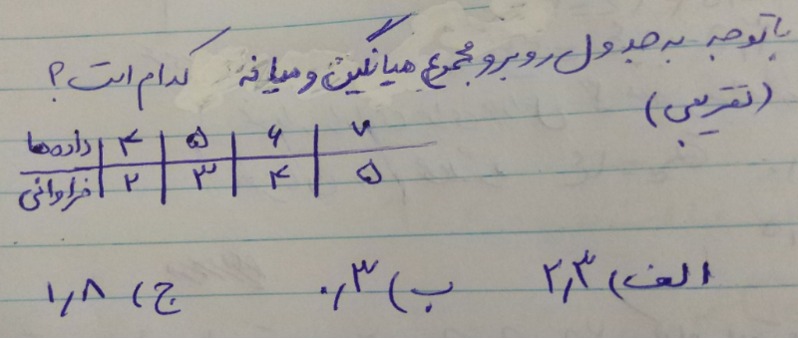 باتوجه به جدول روبرو مجموع میانگین و میانه کدام است؟
(تقریبی)
داده‌ها | ۴ | ۵ | ۶ | ۷
فراوانی | ۲ | ۳ | ۴ | ۵
الف) ۲٫۳ ب) ۰٫۳ ج) ۱٫۸